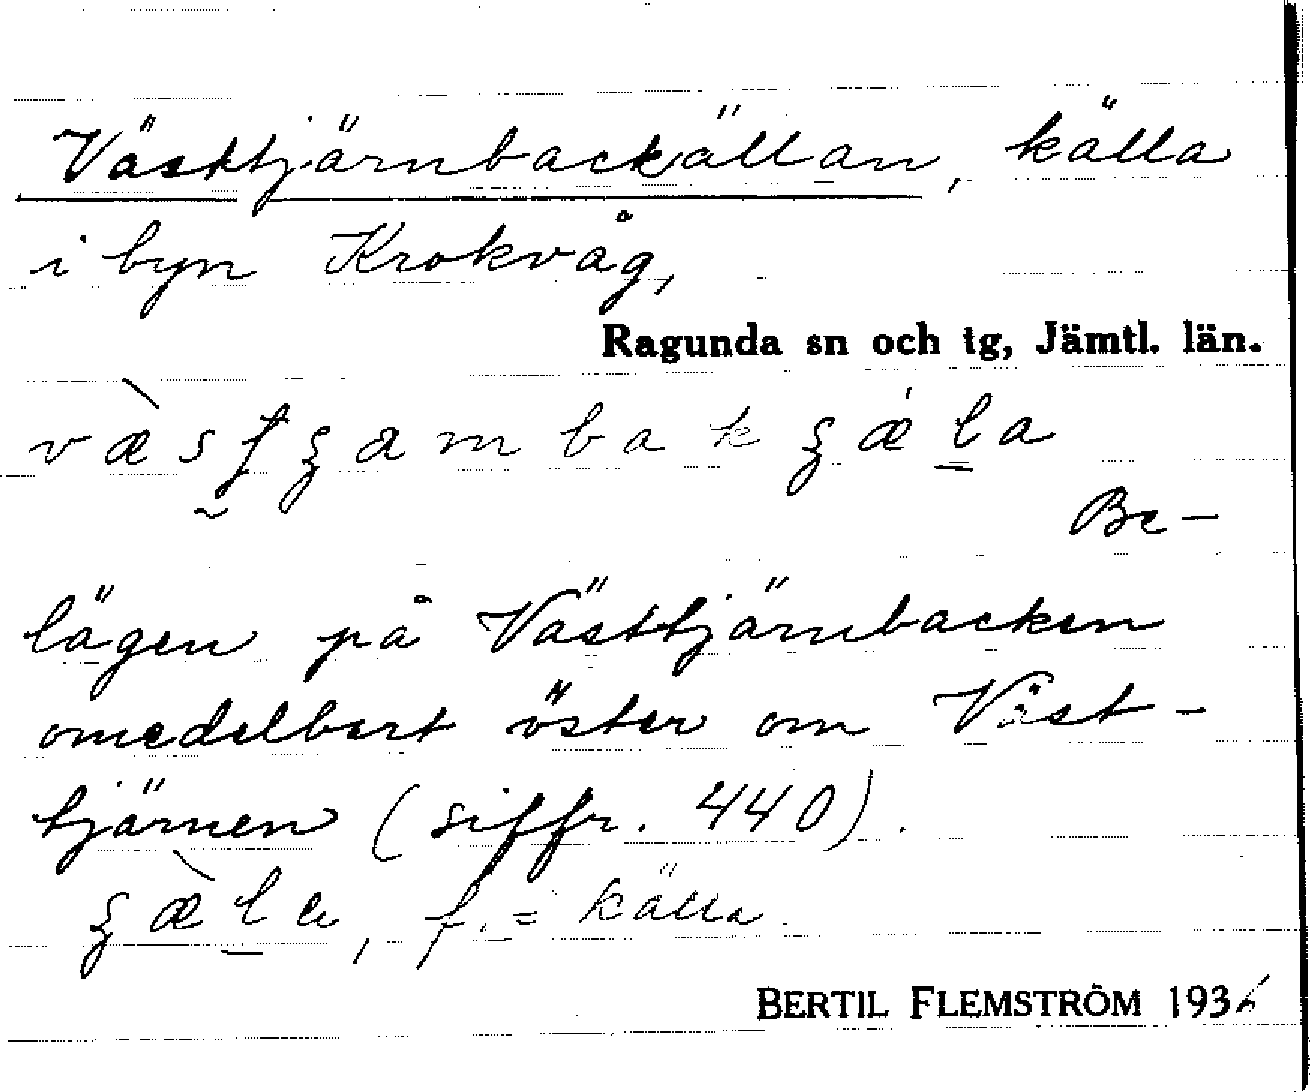 Västtjärnbackällan, källa
i byn Krokvåg,
Ragunda sn och tg, Jämtl. län.
Be-
lägen på Västtjärnbacken
omedelbart öster om Väst-
tjärnen (siffr. 440).
f. = källa.
BERTIL FLEMSTRÖM 1936